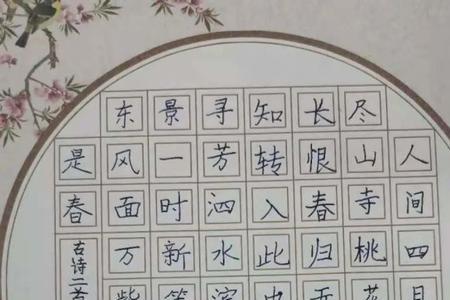 人间四月
尽山寺桃花
长恨春归无
知转入此中
寻芳泗水滨
景一时新等
东风面万紫
是春
古诗二首